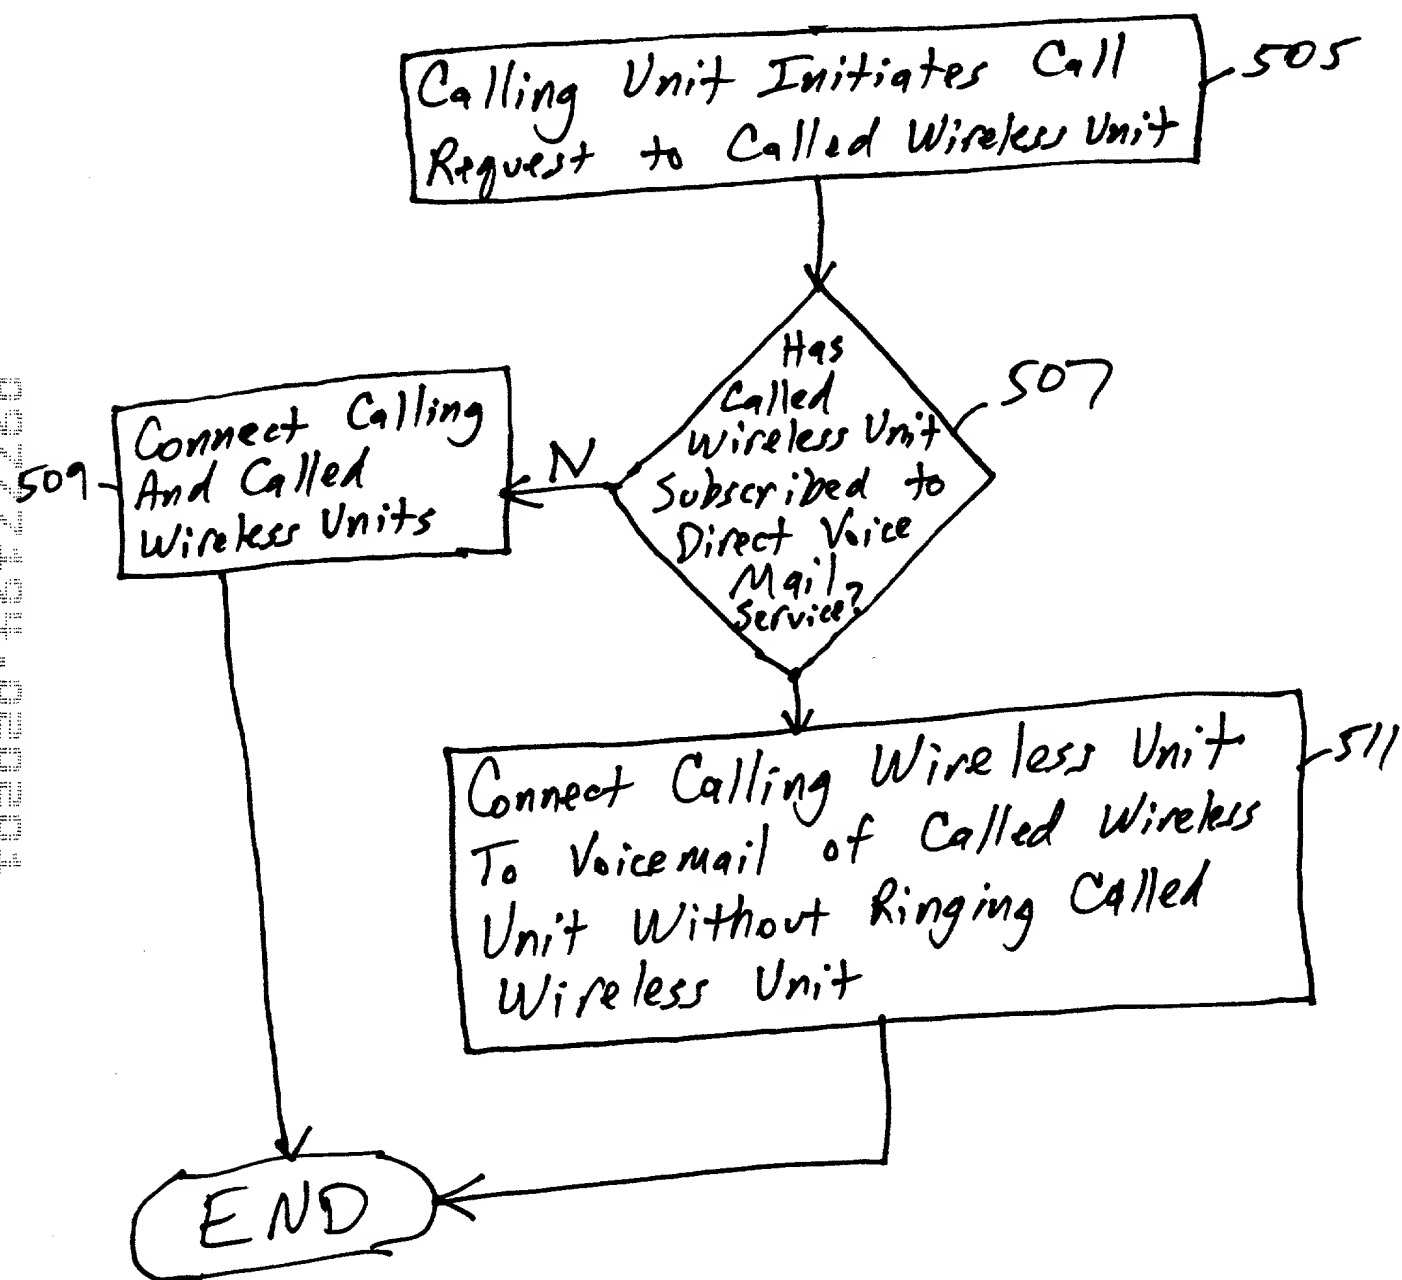 Calling Unit Initiates Call
Request to Called Wireless Unit
505
Has
Called
Wireless Unit
Subscribed to
Direct Voice
Mail
Service?
507
N
Connect Calling
And Called
Wireless Units
509
Connect Calling Wireless Unit
To Voicemail of Called Wireless
Unit Without Ringing Called
Wireless Unit
511
END